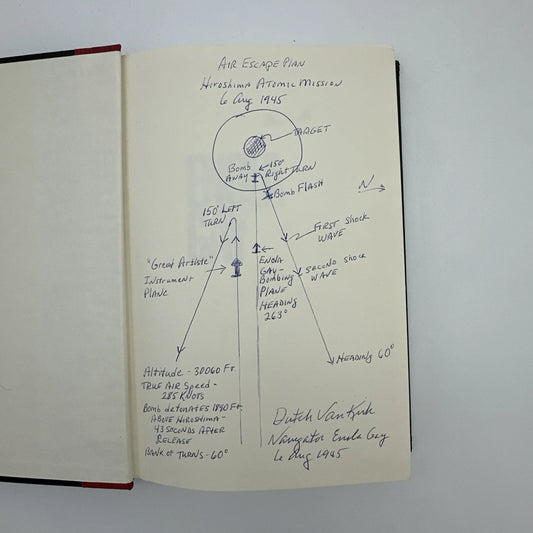 AIR ESCAPE PLAN
HIROSHIMA ATOMIC MISSION
6 Aug 1945
TARGET
Bomb
AWAY
150°
Right TURN
Bomb FLASH
N
150° LEFT
TURN
FIRST SHOCK
WAVE
"Great Artiste"
INSTRUMENT
PLANE
ENOLA
GAY-
BOMBING
PLANE
HEADING
263°
SECOND SHOCK
WAVE
HEADING 60°
Altitude - 30060 Ft.
TRUE AIR Speed -
285 KNOTS
Bomb detonates 1890 Ft.
ABOVE HIROSHIMA -
43 SECONDS AFTER
RELEASE
BANK OF TURNS - 60°
Dutch VanKirk
Navigator Enola Gay
6 Aug 1945